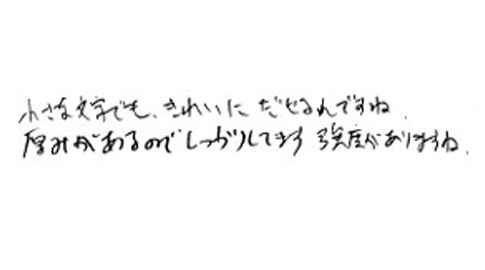 小さな文字でも、きれいに だせるんですね.
厚みがあるのでしっかりしてます 強度がありますね.